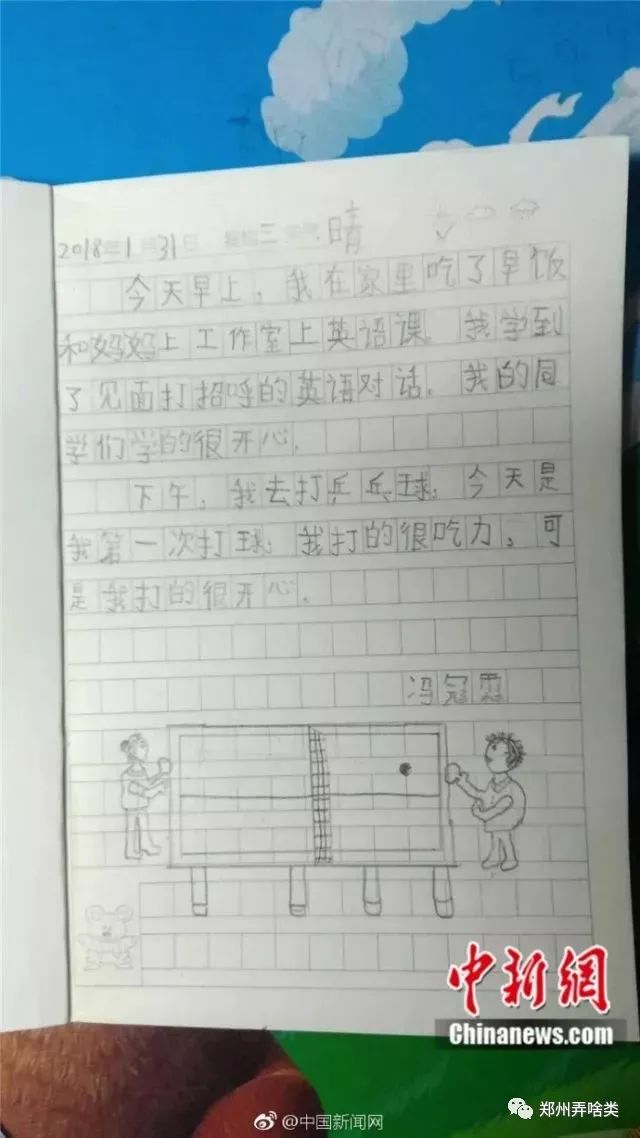 2018年1月31日 星期三 天气 晴
今天早上，我在家里吃了早饭
和妈妈上工作室上英语课。我学到
了见面打招呼的英语对话。我的同
学们学的很开心。
下午，我去打乒乓球。今天是
我第一次打球。我打的很吃力，可
是我打的很开心。
冯冠霖
中新網
Chinanews.com
@中国新闻网
郑州弄啥类